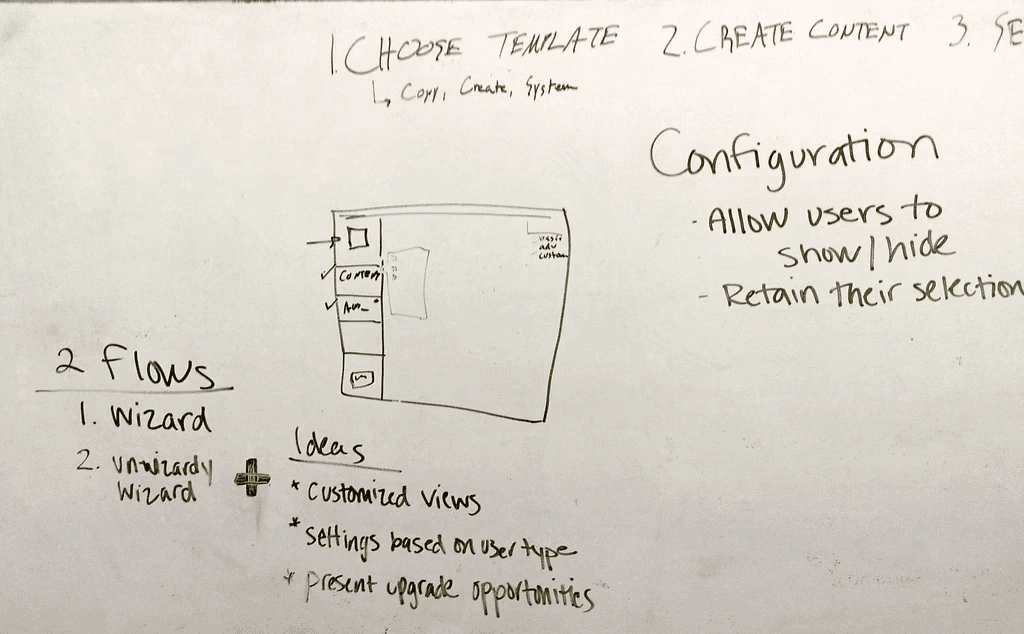 1. CHOOSE TEMPLATE 2. CREATE CONTENT 3. SE
Copy, Create, System
Configuration
- Allow users to
show/hide
- Retain their selection
basic
adv
custom
CONTENT
2 Flows
1. Wizard
2. unwizardy
Wizard
Ideas
* customized views
* settings based on user type
* present upgrade opportunities